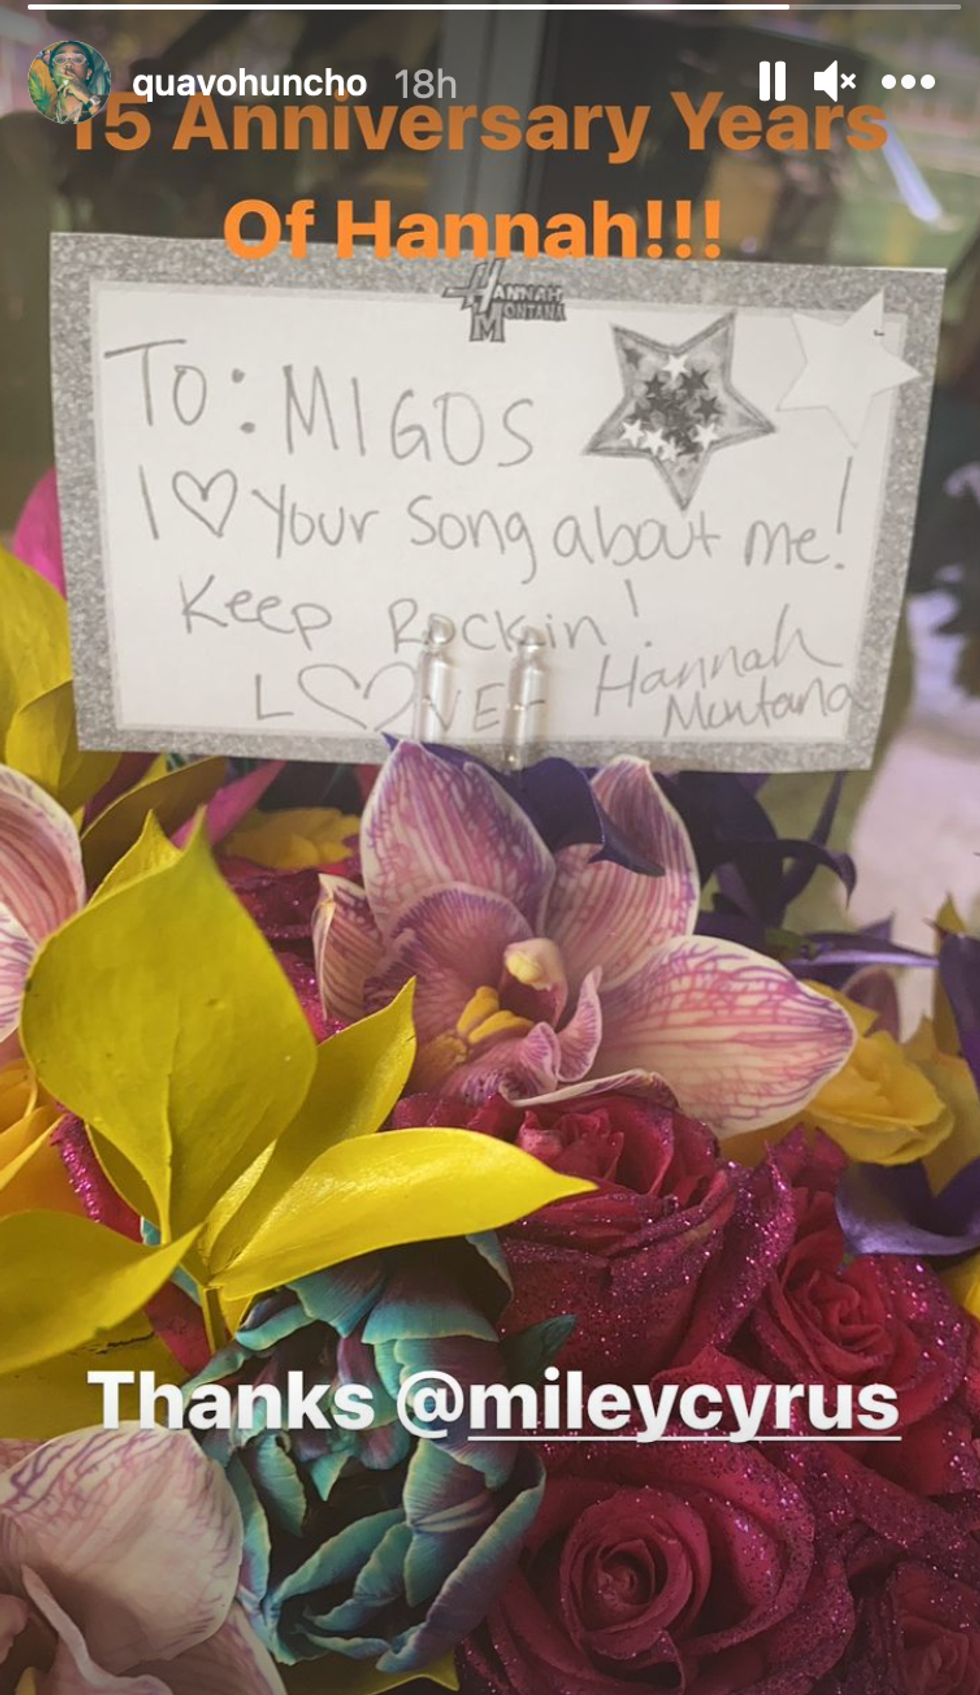 quavohuncho 18h
15 Anniversary Years
Of Hannah!!!
HANNAH
MONTANA
To: MIGOS
I ♡ Your song about me!
Keep Rockin!
LOVE - Hannah
Montana
Thanks @mileycyrus